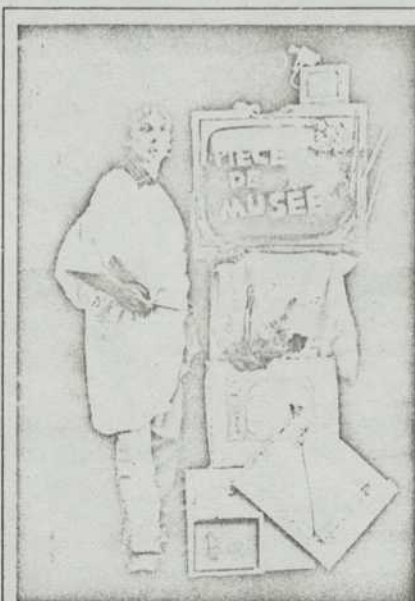 PIECE
DE
MUSEE